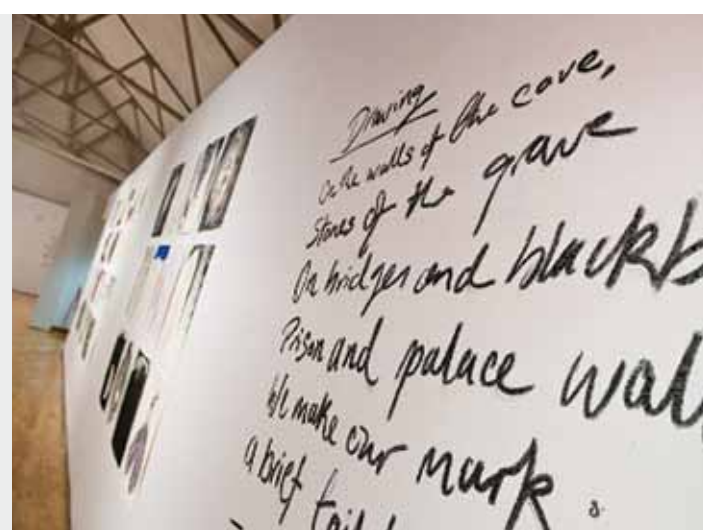 Drawing
On the walls of the cave,
Stones of the grave
On bridges and blackb
Prison and palace wal
We make our mark
a brief